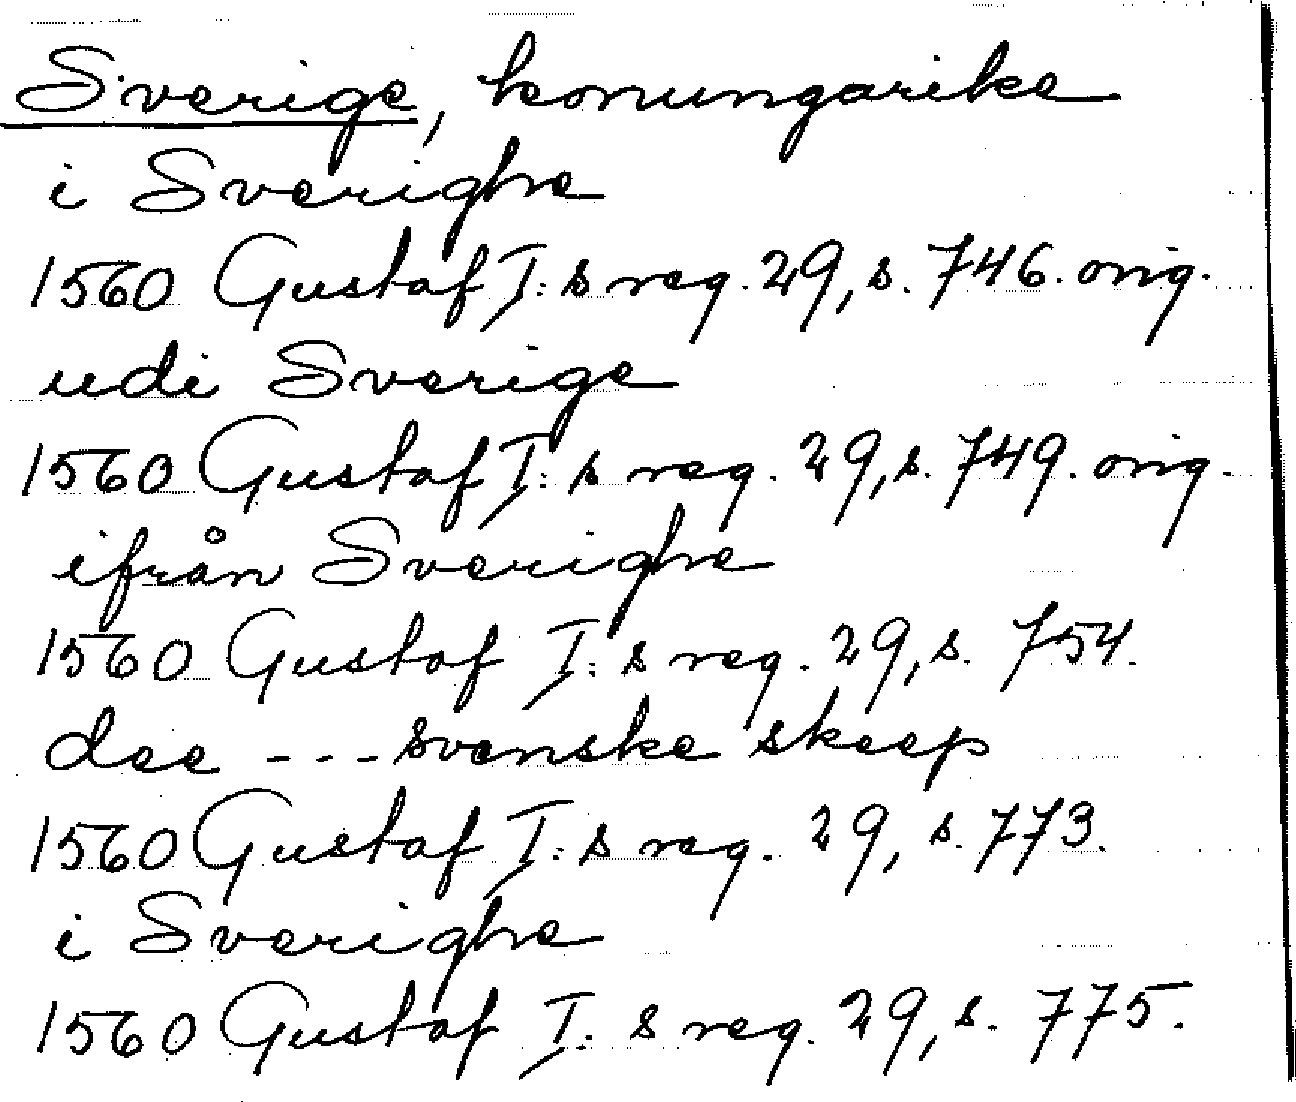 Sverige, konungarike
i Sverighe
1560 Gustaf I:s reg. 29, s. 746. orig.
udi Sverige
1560 Gustaf I:s reg. 29, s. 749. orig.
ifrån Sverighe
1560 Gustaf I:s reg. 29, s. 754.
dee --- svenske skeep
1560 Gustaf I:s reg. 29, s. 773.
i Sverighe
1560 Gustaf I:s reg. 29, s. 775.